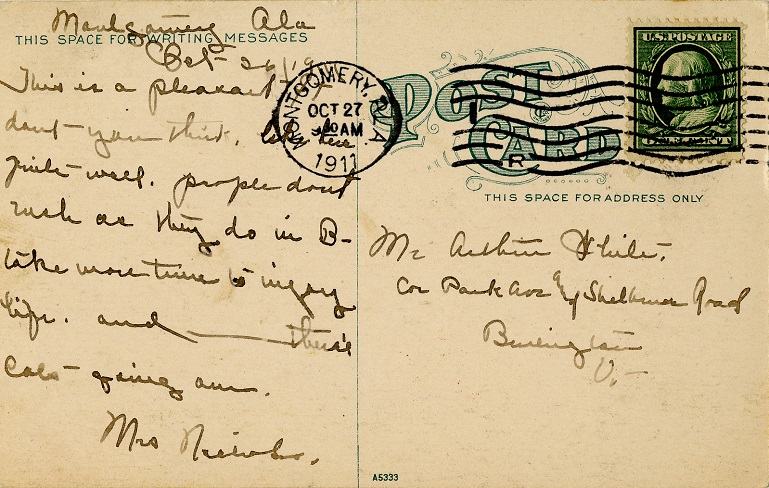 Montgomery Ala
THIS SPACE FOR WRITING MESSAGES
Oct 26/19
This is a pleasant
dont you think, here
quite well. people dont
rush as they do in B-
take more time to injoy
life. and —— there's
lots going on.
Mrs
MONTGOMERY, ALA
OCT 27
AM
1911
R
POST
CARD
U.S. POSTAGE
THIS SPACE FOR ADDRESS ONLY
Mr Arthur White.
Cor Park Ave & Shelburne Road
Burlington
Vt-
A5333